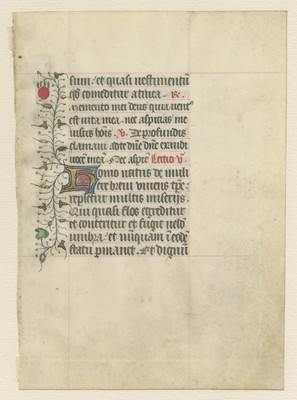 sum. et quasi vestimentū
qđ comeditur a tinea. R.
Memento mei deus quia vent⁹
est vita mea. nec aspiciat me
visus hoīs. V. De profundis
clamaui ad te dn̄e dn̄e exaudi
uocē meā. Nec aspic̄ Lectio v.
Homo natus de muli
ere breui viuens tp̄re.
repletur multis miserijs.
Qui quasi flos egreditur
et conteritur et fugit uelud
umbra. et nūquam ī eodē
statu ꝑmanet. Et dignum